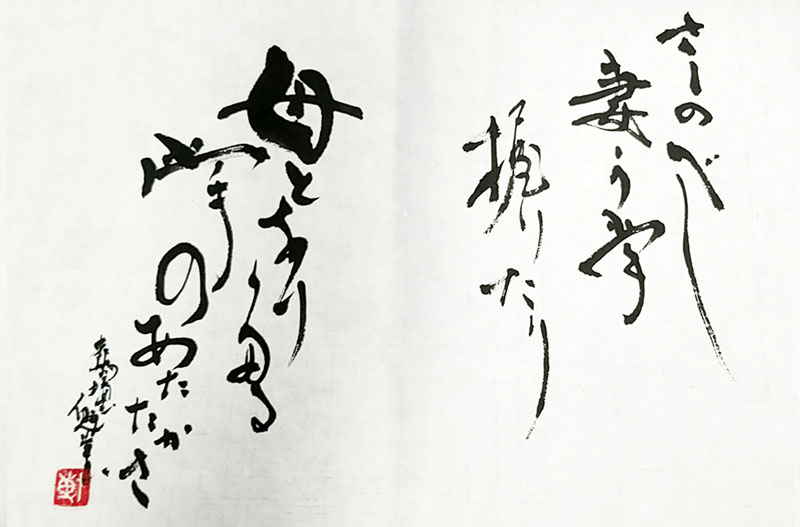 さしのべし
妻か掌
握りたり
母となりたる
掌のあたたかさ